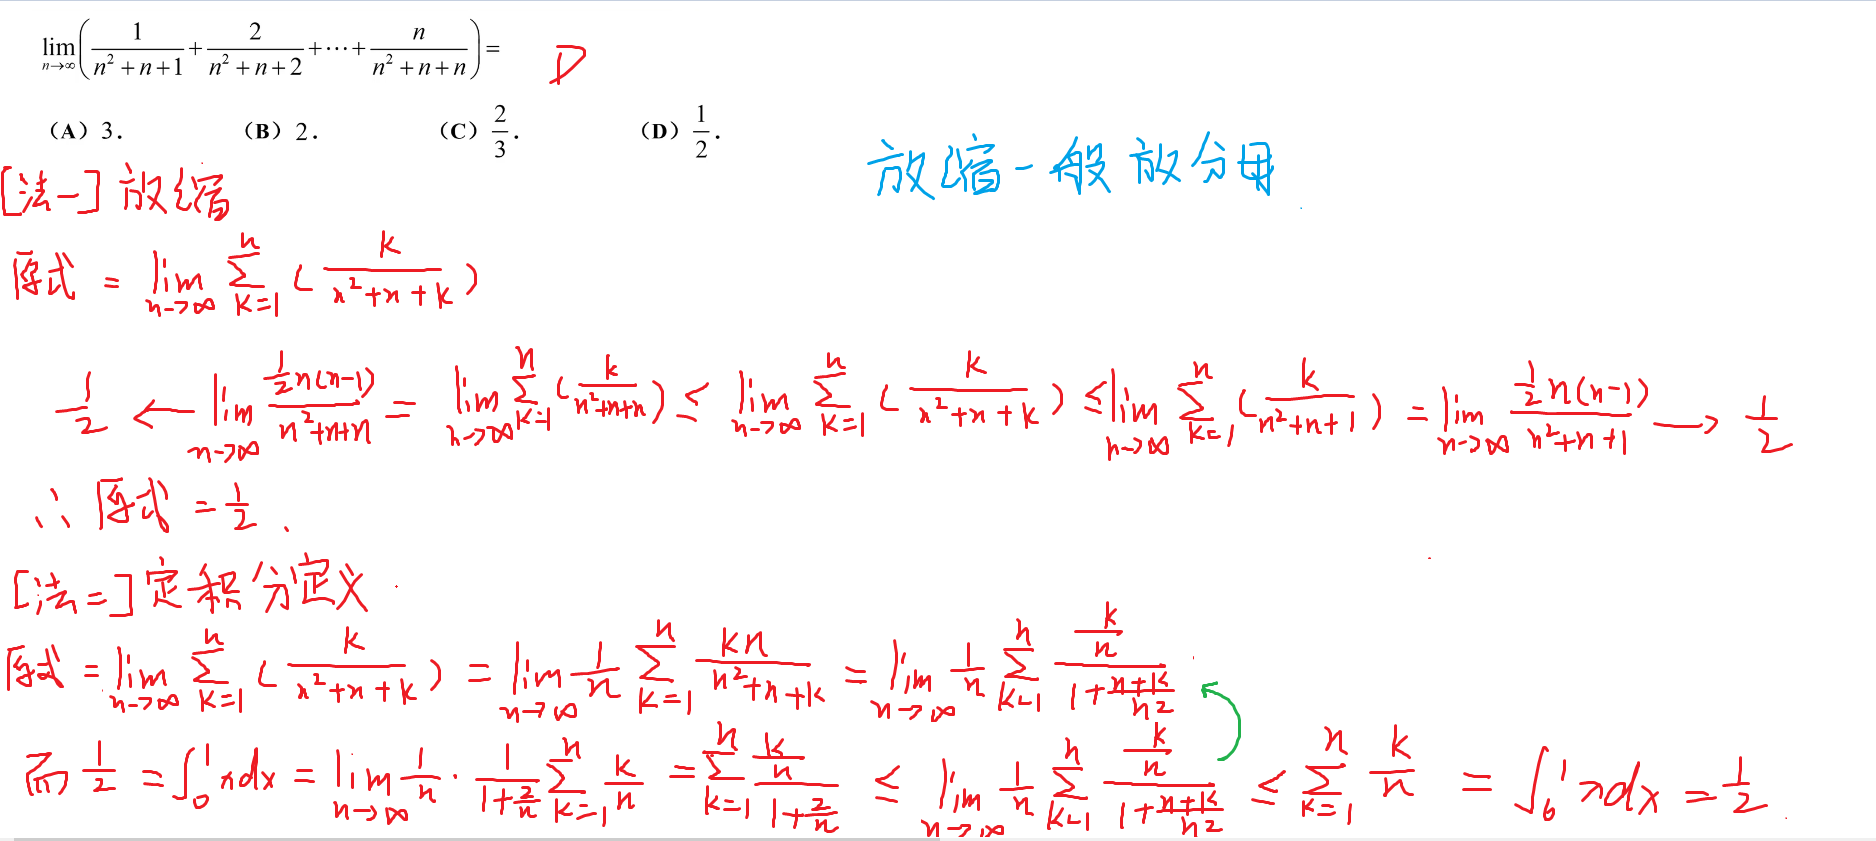 lim n→∞ (1/(n²+n+1) + 2/(n²+n+2) + ⋯ + n/(n²+n+n)) = D
(A) 3. (B) 2. (C) 2/3. (D) 1/2.
放缩一般放分母
[法一] 放缩
原式 = lim n→∞ ∑ k=1 n (k/(n²+n+k))
1/2 ← lim n→∞ (½n(n-1))/(n²+n+n) = lim n→∞ ∑ k=1 n (k/(n²+n+n)) ≤ lim n→∞ ∑ k=1 n (k/(n²+n+k)) ≤ lim n→∞ ∑ k=1 n (k/(n²+n+1)) = lim n→∞ (½n(n-1))/(n²+n+1) → 1/2
∴ 原式 = 1/2.
[法二] 定积分定义
原式 = lim n→∞ ∑ k=1 n (k/(n²+n+k)) = lim n→∞ 1/n ∑ k=1 n kn/(n²+n+k) = lim n→∞ 1/n ∑ k=1 n (k/n)/(1+(n+k)/n²)
而 1/2 = ∫₀¹ x dx = lim n→∞ 1/n · 1/(1+2/n) ∑ k=1 n k/n = ∑ k=1 n (k/n)/(1+2/n) ≤ lim n→∞ 1/n ∑ k=1 n (k/n)/(1+(n+k)/n²) ≤ ∑ k=1 n k/n = ∫₀¹ x dx = 1/2.